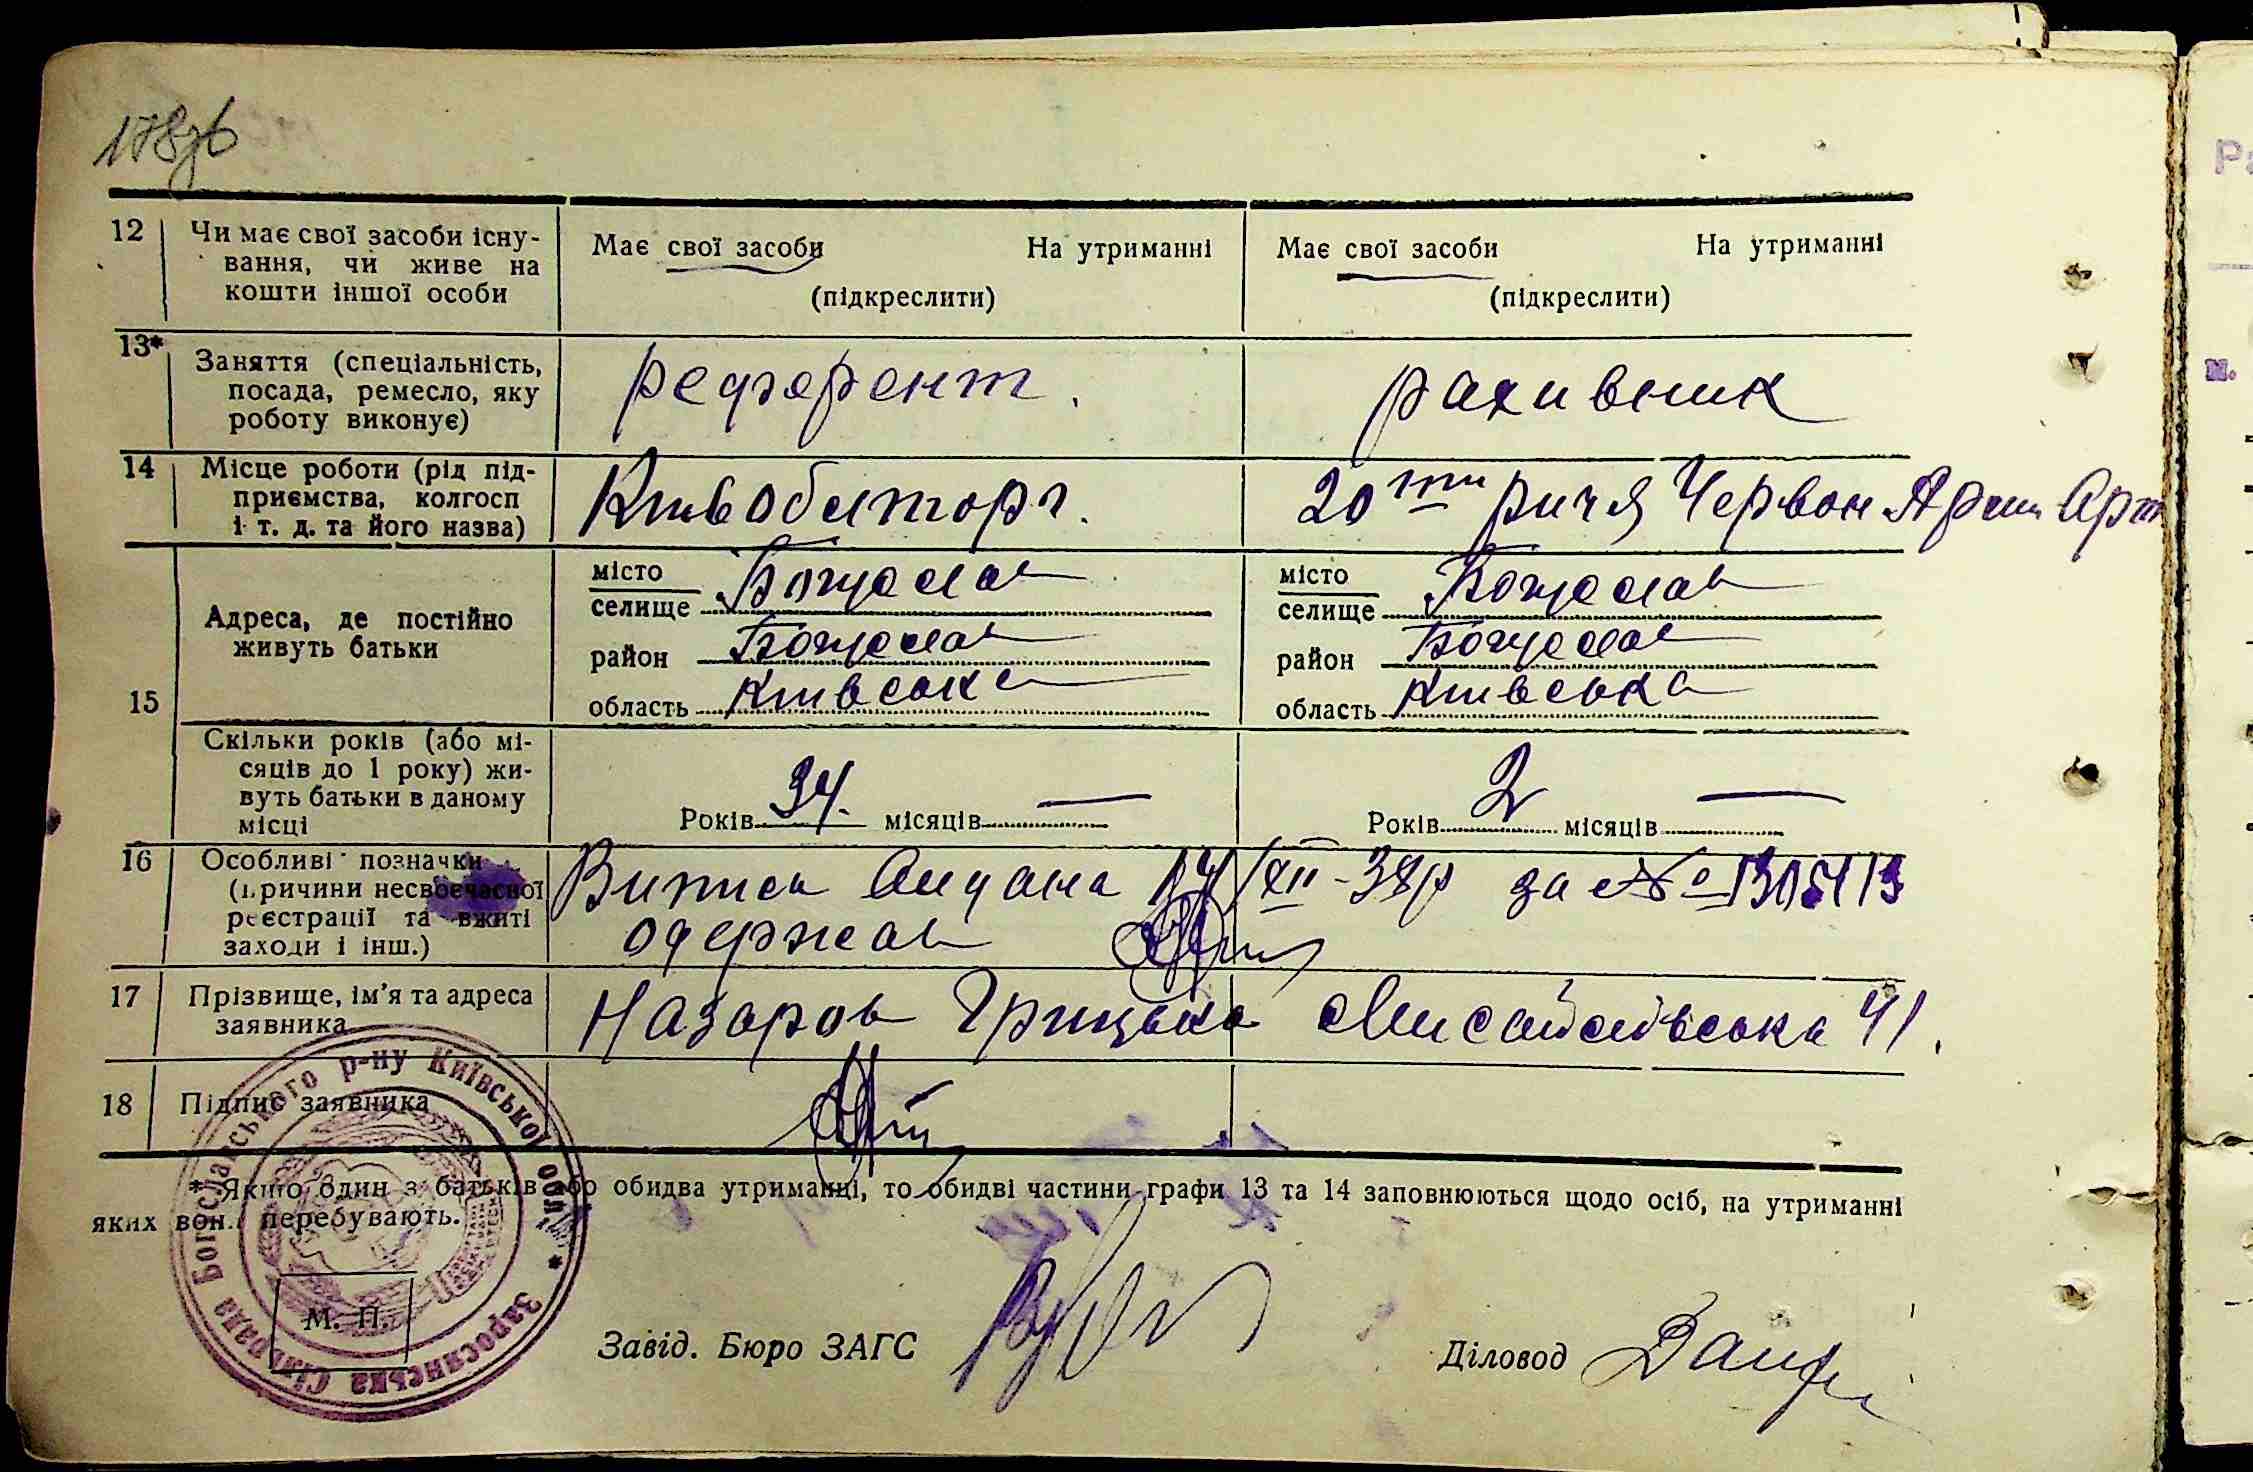 178зб
12 Чи має свої засоби існу-
вання, чи живе на
кошти іншої особи
Має свої засоби На утриманні
(підкреслити)
Має свої засоби На утриманні
(підкреслити)
13* Заняття (спеціальність,
посада, ремесло, яку
роботу виконує)
референт.
рахивник
14 Місце роботи (рід під-
приємства, колгосп
і т. д. та його назва)
20 ти риччя Червон Арм Арт
15 Адреса, де постійно
живуть батьки
місто
селище Богуслав
район Богуслав
область Київська
місто
селище Богуслав
район Богуслав
область Київська
Скільки років (або мі-
сяців до 1 року) жи-
вуть батьки в даному
місці
Років 34. місяців —
Років 2 місяців —
16 Особливі позначки
(причини несвоєчасної
реєстрації та вжиті
заходи і інш.)
Випись видана 14/XII-38р за №
одержав
17 Прізвище, ім'я та адреса
заявника
Назаров Грицько 41.
18 Підпис заявника
* Якщо один з батьків або обидва утриманці, то обидві частини графи 13 та 14 заповнюються щодо осіб, на утриманні
яких вони перебувають.
М. П.
Заросянська Сільрада Богуславського р-ну Київської обл. *
Завід. Бюро ЗАГС
Діловод